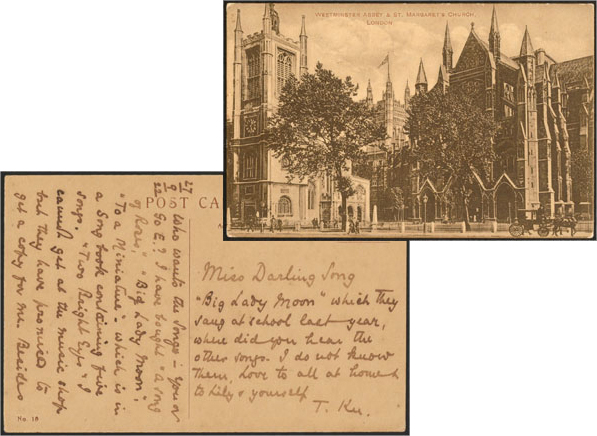 WESTMINSTER ABBEY & ST. MARGARET'S CHURCH,
LONDON
POST CA
27
9
22
Who wants the songs – You or
Go E.? I have bought "A song
of Roses," "Big Lady Moon",
"To a Miniature" – which is in
a Song book containing five
songs. "Two Bright Eyes" I
cannot get at the music shop
but they have promised to
get a copy for me. Besides
Miss Darling Song
"Big Lady Moon" which they
sang at school last year,
where did you hear the
other songs. I do not know
them, Love to all at home &
to Lily & yourself
No 18